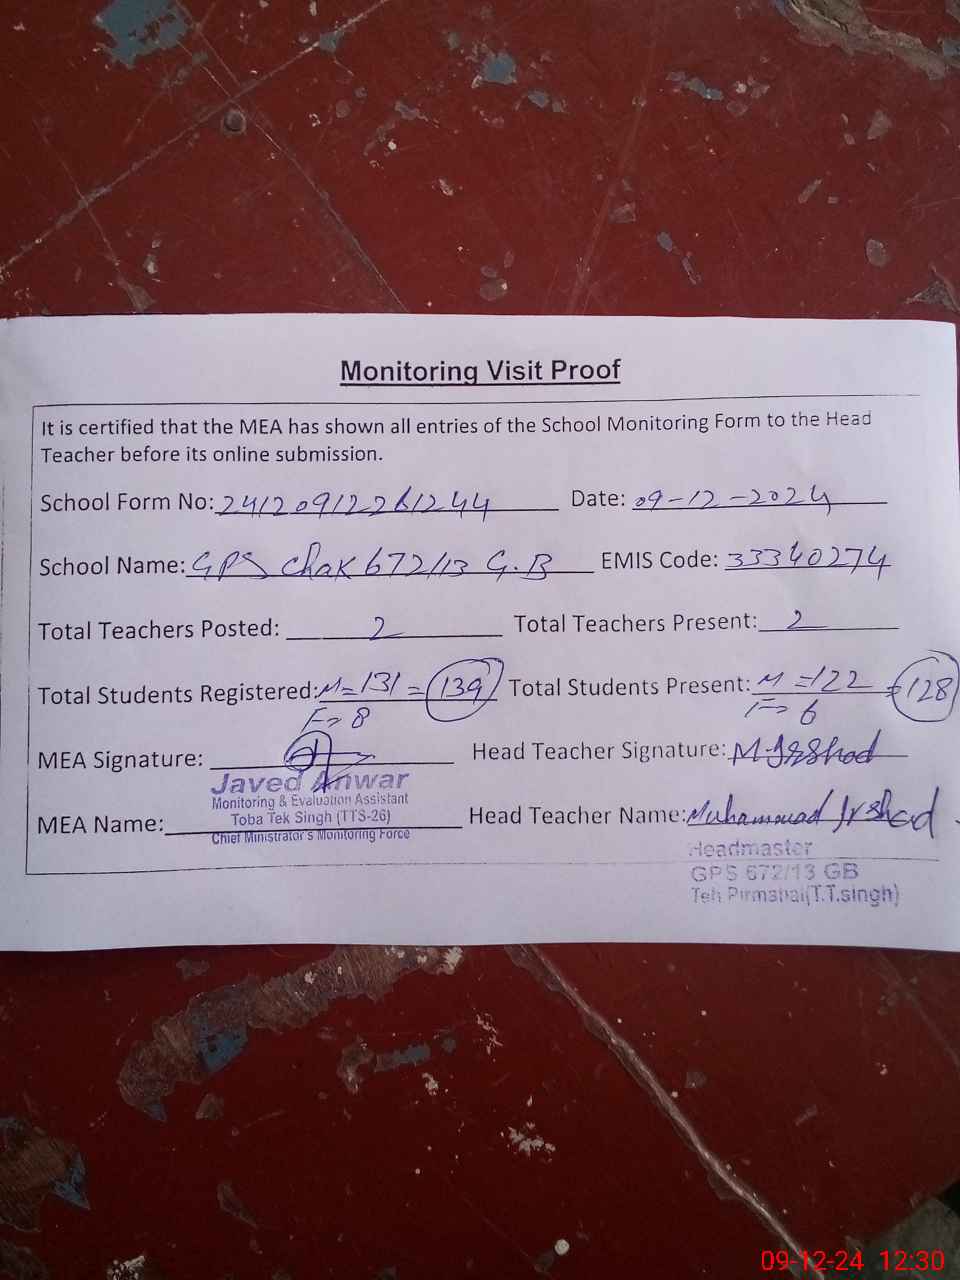 Monitoring Visit Proof
It is certified that the MEA has shown all entries of the School Monitoring Form to the Head
Teacher before its online submission.
School Form No: 24120912261244 Date: 09-12-2024
School Name: GPS Chak 672/13 G.B EMIS Code: 33340274
Total Teachers Posted: 2 Total Teachers Present: 2
Total Students Registered: M=131 = 139 Total Students Present: M=122 = 128
F= 8 F= 6
MEA Signature: Head Teacher Signature: M-Irshad
Javed Anwar
Monitoring & Evaluation Assistant
Toba Tek Singh (TTS-26)
MEA Name: Head Teacher Name: Muhammad Irshad
Chief Ministrator's Monitoring Force
Headmaster
GPS 672/13 GB
Teh Pirmahal(T.T.singh)
09-12-24 12:30